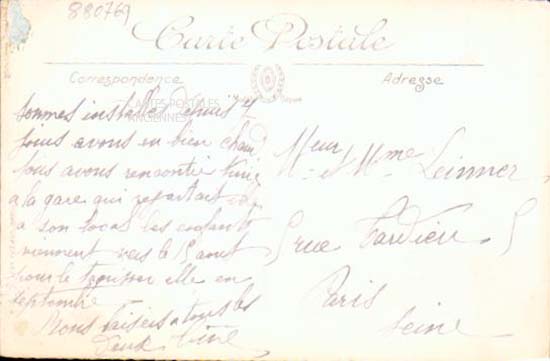 880769
Carte Postale
Correspondence
Adresse
CARTES POSTALES
ANCIENNES
sommes installés depuis
jours avons eu bien chaud
avons rencontré
a la gare qui repartait
a son local les enfants
viennent vers le 15 aout
pour le elle en
septembre
Nous baisers a tous les
deux
Meur et Mme Leinner
5 rue Tardieu 5
Paris
Seine